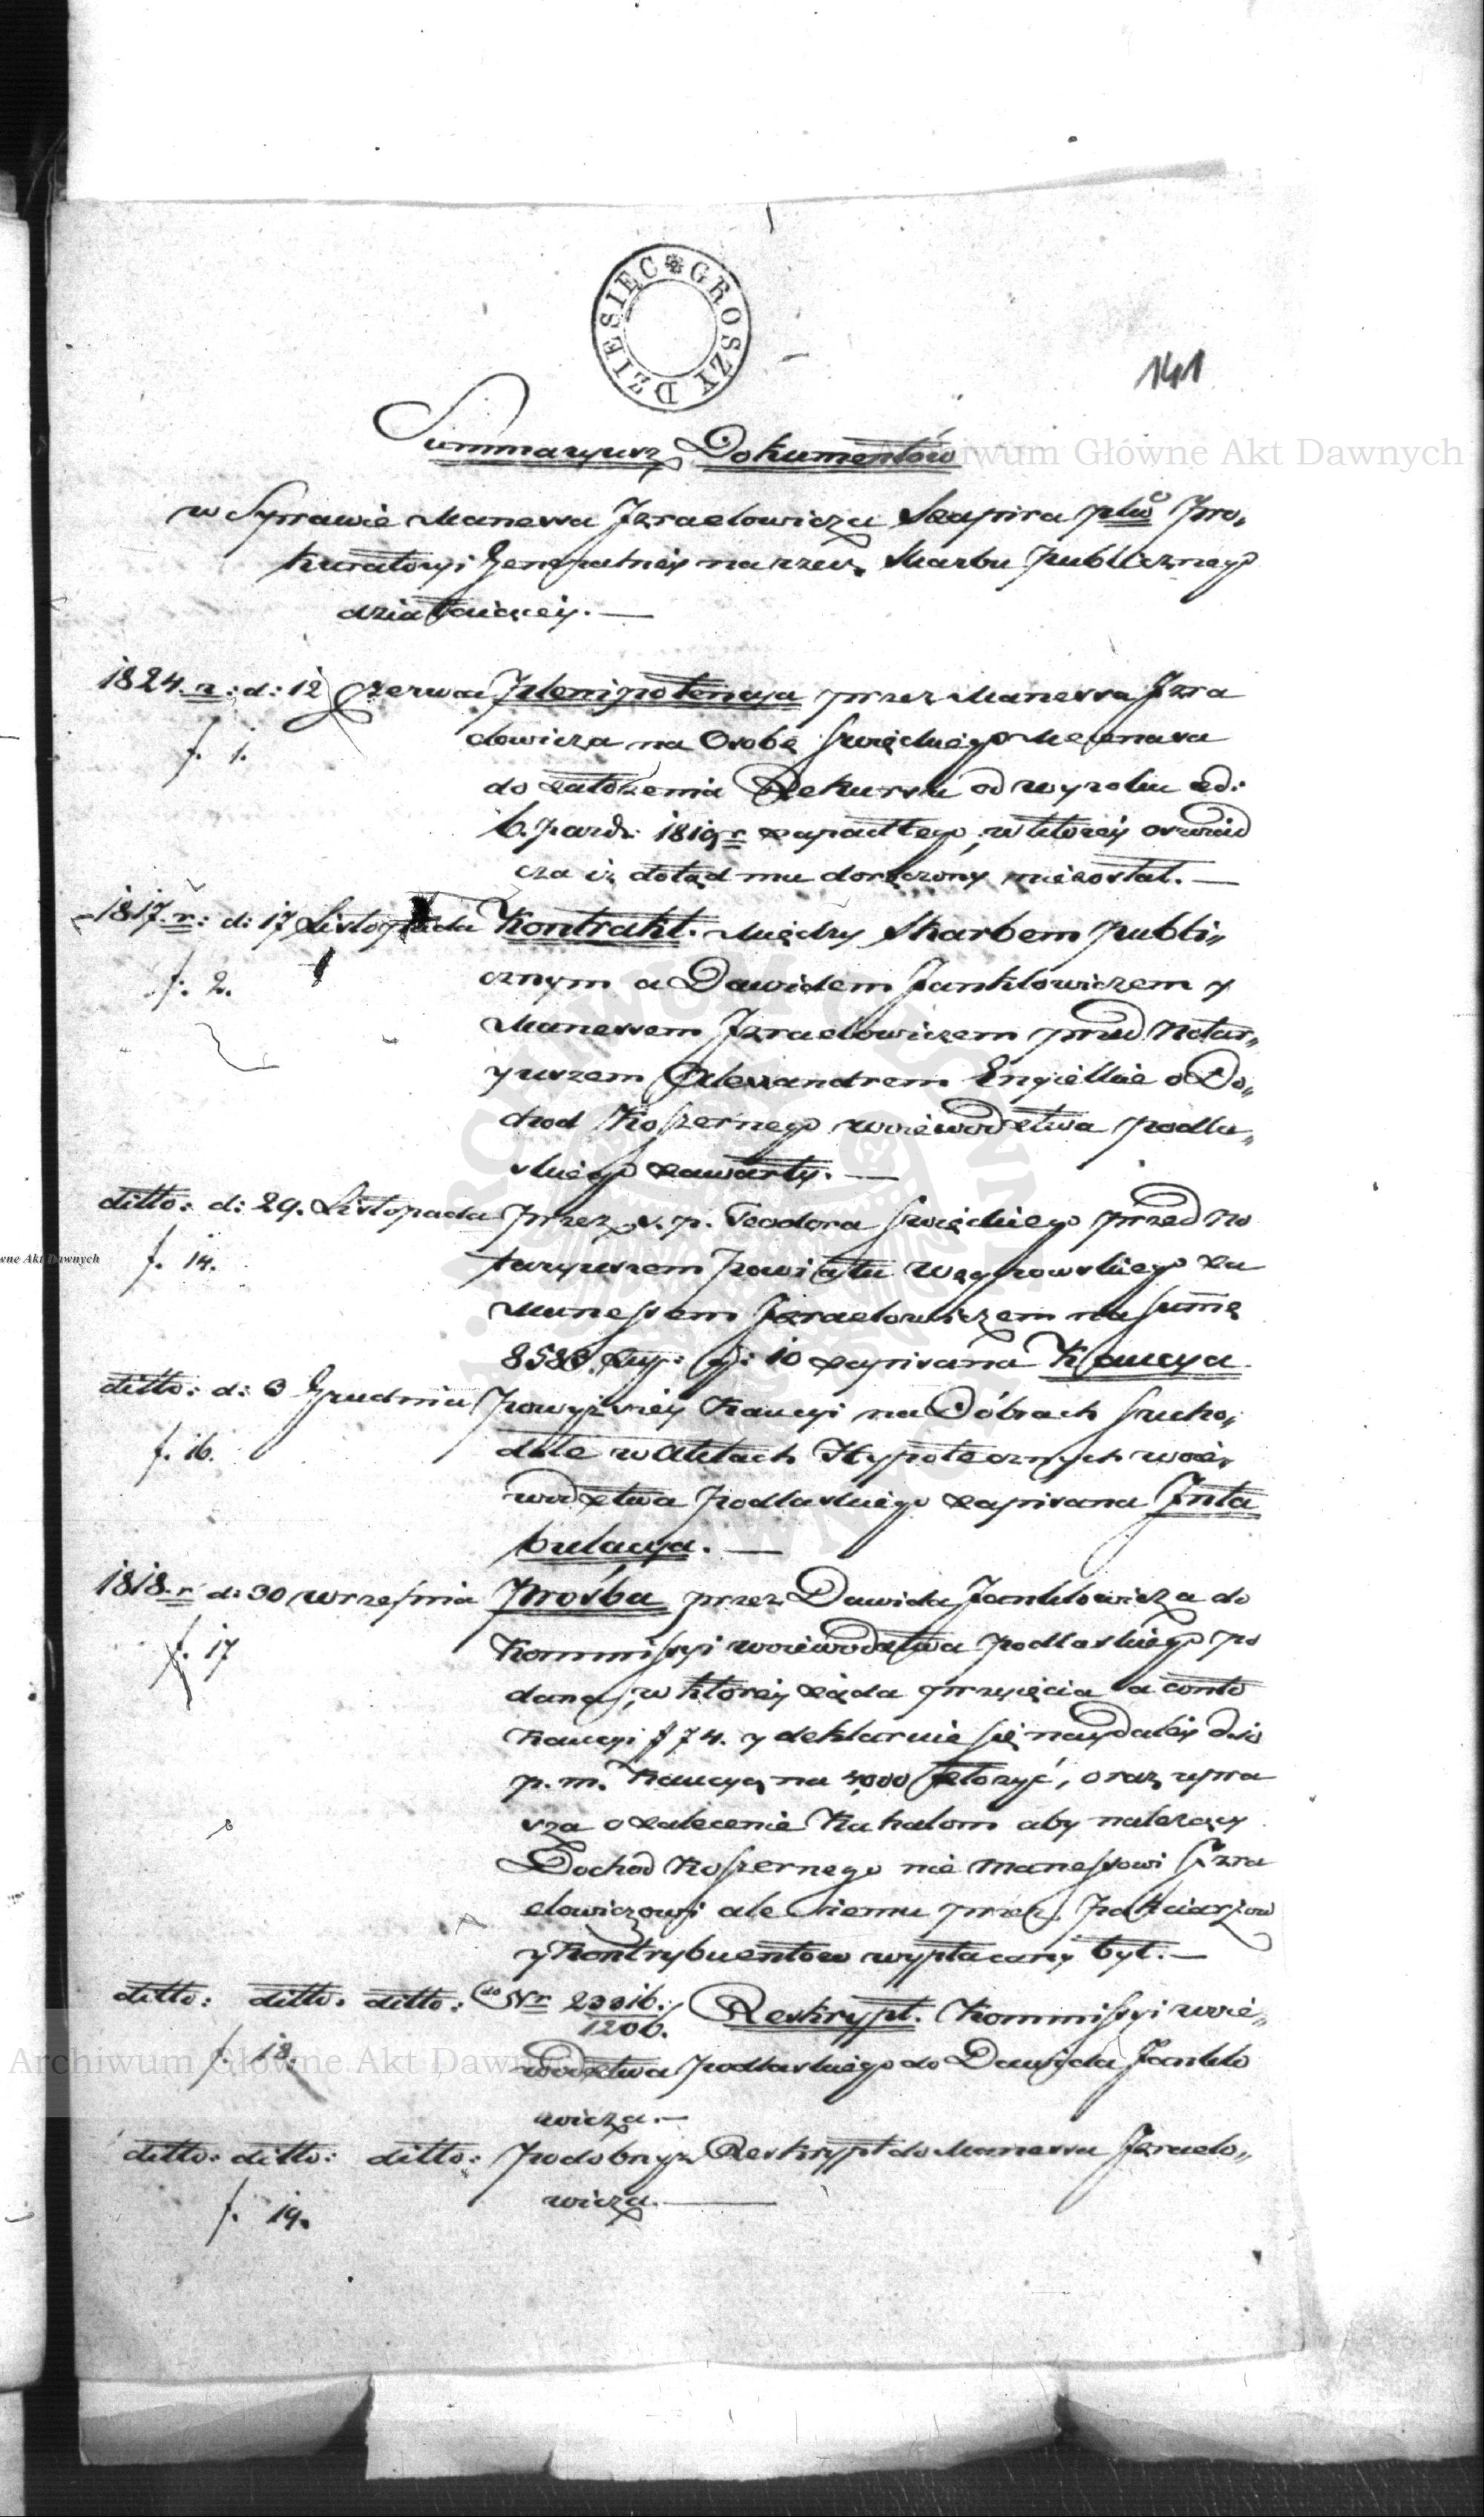 DZIESIĘC GROSZY
141
Summaryusz Dokumentów
Archiwum Główne Akt Dawnych
w Sprawie Manessa Izraelowicza Szapira plwo Pro,
kuratoryi Generalnéy na rzecz Skarbu Publicznego
działaiącéy. —
1824. r: d: 12 Czerwca Plenipotencya przez Manessa Izra
f. 1. elowicza na Osobę Swięckiego Mecenasa
do założenia Rekursu od wyroku z d:
6. Pazdz: 1819 r zapadłego, w któréy oswiad
cza iż dotąd mu doręczony niezostał. —
1817. r: d: 17 Listopada Kontrakt. Między Skarbem Publi„
f. 2. cznym a Dawidem Janklowiczem y
Manessem Izraelowiczem przed Notar„
yuszem Alexandrem Engielke o Do„
chod Koszernego Woiewodztwa Podla„
skiego zawarty. —
ditto: d: 29. Listopada Przez s. p. Teodora Swięckiego przed No
f. 14. taryuszem Powiatu Węgrowskiego za
Manessem Izraelowiczem na Summę
8583. Złp: g: 10 zapisana Kaucya.
ditto: d: 3 Grudnia Powyższéy Kaucyi na Dobrach Sucho„
f. 16. dole w Aktach Hypotecznych Woie„
wodztwa Podlaskiego zapisana Inta
bulacya. —
1818. r d: 30 Wrzesnia Prośba przez Dawida Janklowicza do
f. 17 Kommissyi Woiewodztwa Podlaskiego po
dana, w któréy żąda przyięcia a conto
Kaucyi f 74. y deklaruie się naydaléy d. 10
p. m. Kaucyą na 4000 złożyć, oraz upra
sza o zalecenie Kahałom aby należący
Dochód Koszernego nie Manessowi Izra
elowiczowi ale iemu przez Pakciarzow
y Kontrybuentow wypłacany był. —
ditto: ditto. ditto: do Nr 23316. / 1206. Reskrypt. Kommissyi Woie„
f. 18. wodztwa Podlaskiego do Dawida Janklo
wicza. —
ditto: ditto: ditto: Podobnyż Reskrypt do Manessa Izraelo„
f. 19. wicza. —
Archiwum Główne Akt Dawnych